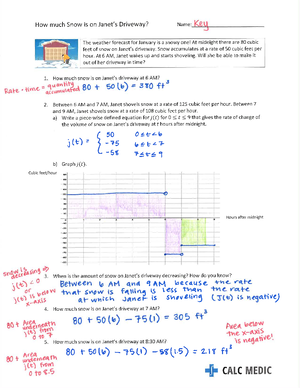 How much Snow is on Janet's Driveway?
Name: Key
The weather forecast for January is a snowy one! At midnight there are 80 cubic
feet of snow on Janet's driveway. Snow accumulates at a rate of 50 cubic feet per
hour. At 6 AM, Janet wakes up and starts shoveling. Will she be able to make it
out of her driveway in time?
1. How much snow is on Janet's driveway at 6 AM?
Rate · time = quantity accumulated
80 + 50(6) = 380 ft³
2. Between 6 AM and 7 AM, Janet shovels snow at a rate of 125 cubic feet per hour. Between 7
and 9 AM, Janet shovels snow at a rate of 108 cubic feet per hour.
a) Write a piece-wise defined equation for j(t) for 0 ≤ t ≤ 9 that gives the rate of change of
the volume of snow on Janet's driveway at t hours after midnight.
j(t) = { 50 0≤t≤6
-75 6≤t≤7
-58 7≤t≤9
b) Graph j(t).
Cubic feet/hour
Hours after midnight
3. When is the amount of snow on Janet's driveway decreasing? How do you know?
snow is decreasing →
j(t) < 0
or
j(t) is below
x-axis
Between 6 AM and 9 AM because the rate
that snow is falling is less than the rate
at which Janet is shoveling (j(t) is negative)
4. How much snow is on Janet's driveway at 7 AM?
80 + Area
underneath
j(t) from
0 to 7
80 + 50(6) - 75(1) = 305 ft³
Area below
the x-axis
is negative!
5. How much snow is on Janet's driveway at 8:30 AM?
80 + Area
underneath
j(t) from
0 to 8.5
80 + 50(6) - 75(1) - 58(1.5) = 218 ft³
CALC MEDIC